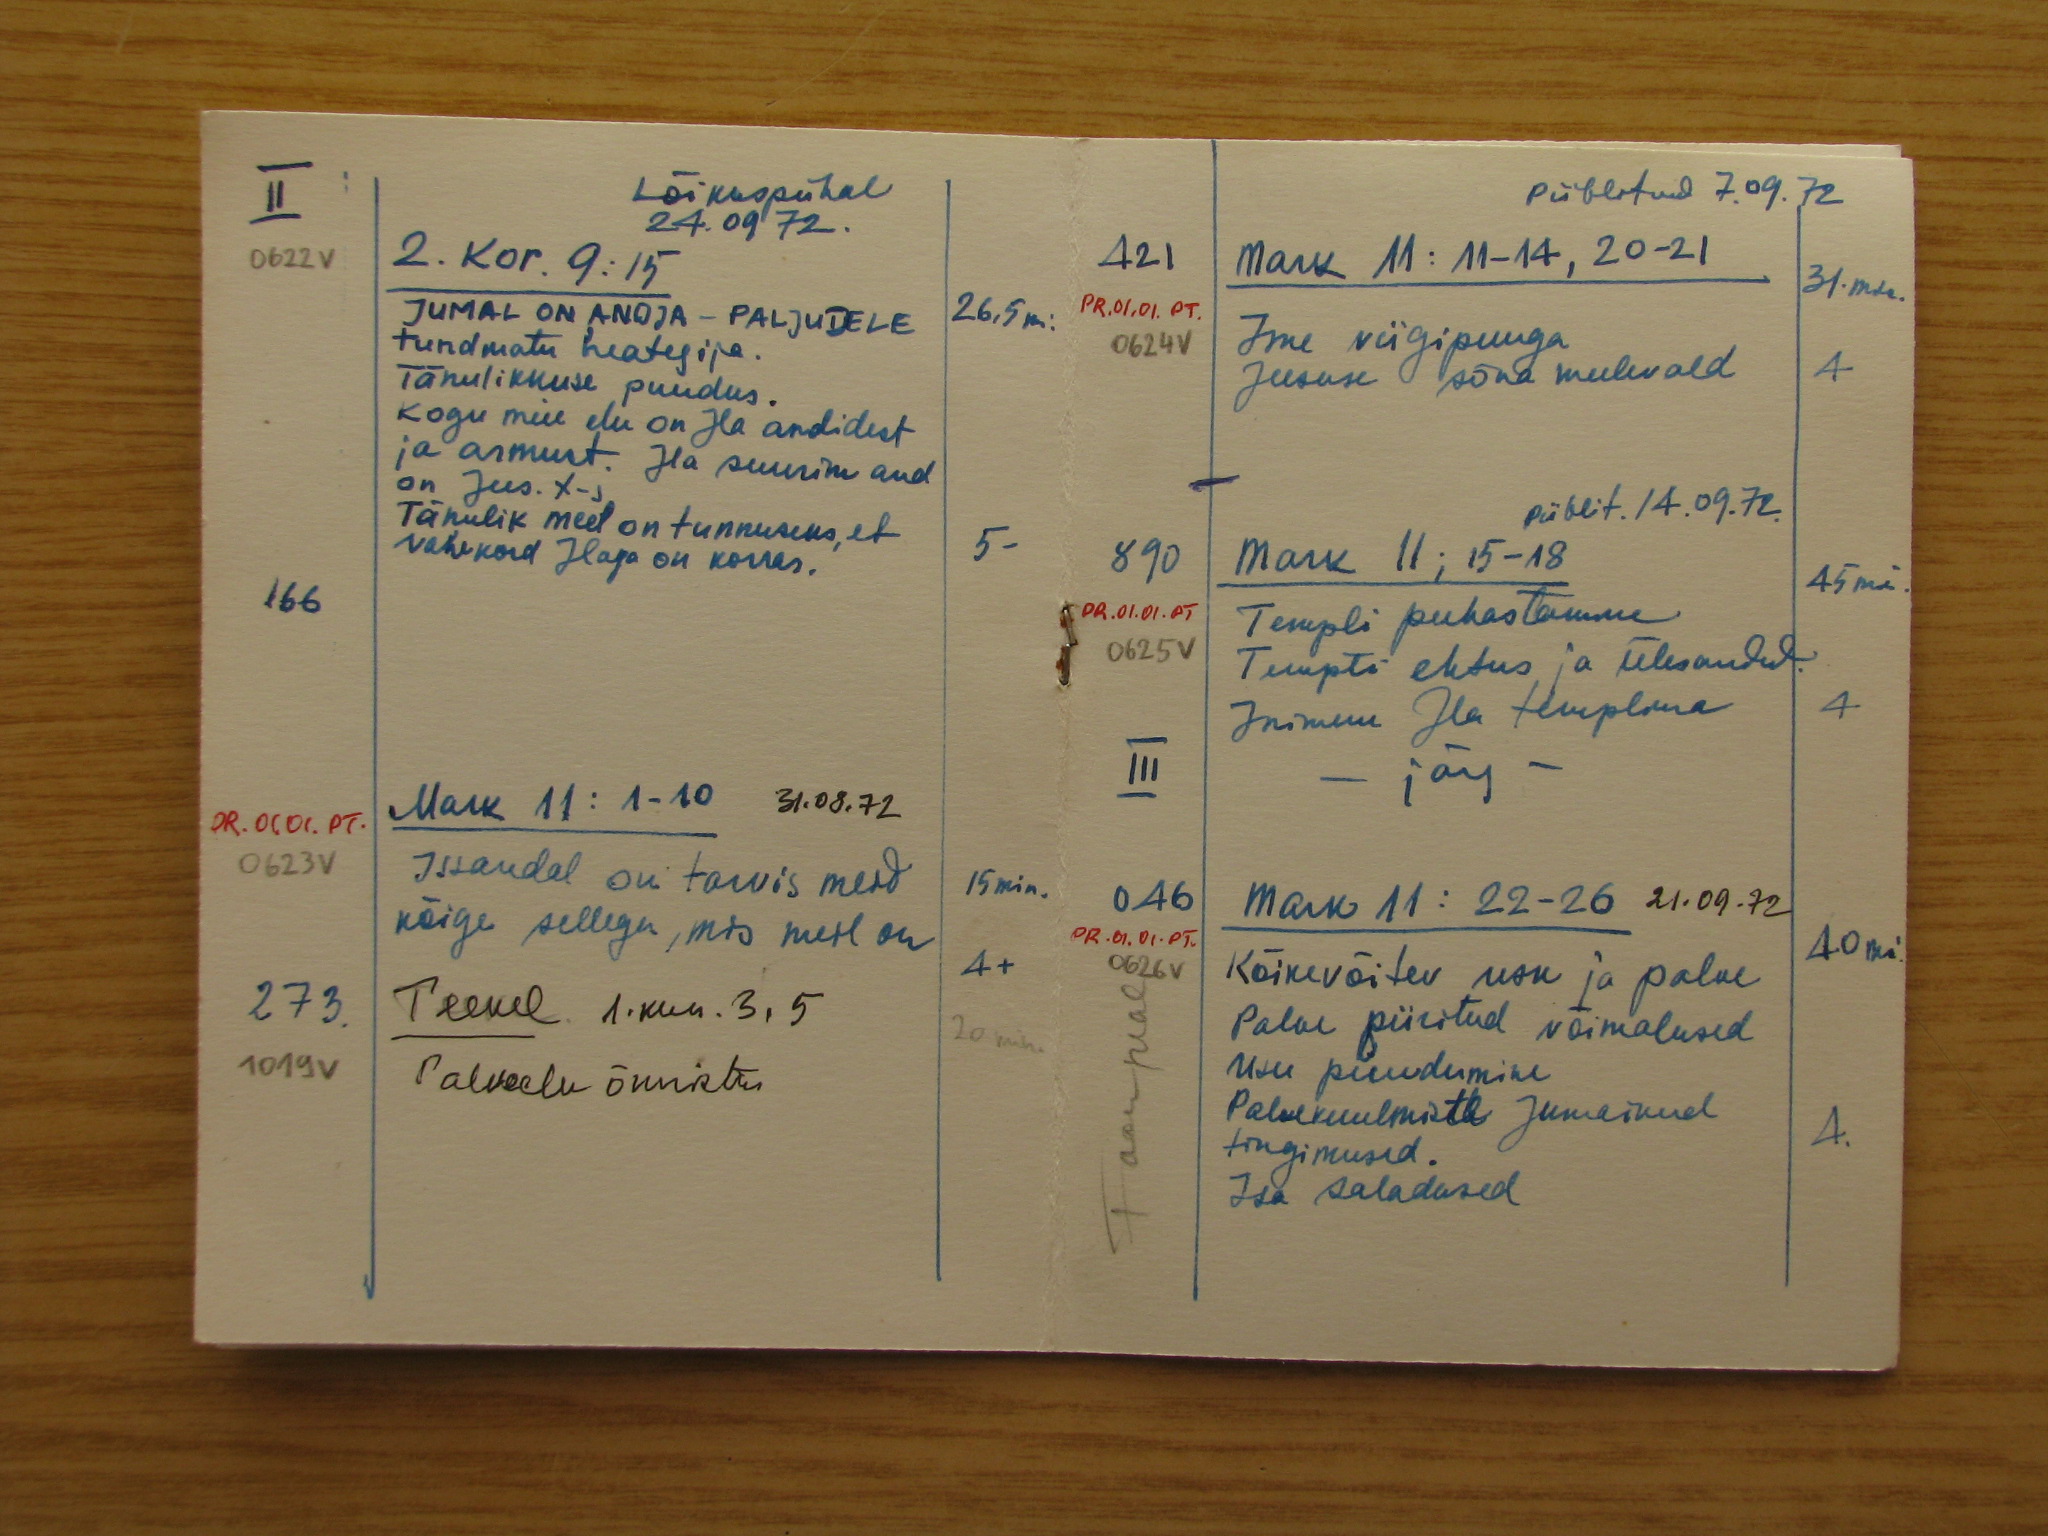 II :
Lõikuspühal
24.09 72.
0622V
2. Kor. 9:15
JUMAL ON ANDJA – PALJUDELE
26,5 mi.
tundmatu heategija.
Tänulikkuse puudus.
Kogu meie elu on Jla andidest
ja armust. Jla suurim and
on Jees. X-s
Tänulik meel on tunnuseks, et
vahekord Jlaga on korras.
5-
166
Mark 11: 1-10 31.08.72
PR.01.01. PT.
0623V
Issandal on tarvis meid
15 min.
kõige sellega, mis meil on
4+
273.
Teekel. 1. kun. 3,5
20 min.
1019V
Palveelu õnnistus
Püblitund 7.09.72
421
Mark 11: 11-14, 20-21
31. min.
PR.01.01. PT.
0624V
Ime viigipuuga
Jeesuse sõna meelevald
4-
Püblit. 14.09.72.
890
Mark 11; 15-18
45 min.
PR.01.01. PT
0625V
Templi puhastamine
Templi ehtus ja ülesanded.
Inimene Jla templina
4-
III
— järg —
046
Mark 11: 22-26 21.09.72
40 mi.
PR.01.01. PT.
0626V
Kõikevõitev usk ja palve
Palve piiritud võimalused
Usu puudumine
Palvekuulmiste Jumalikud
4.
tingimused.
Isa saladused